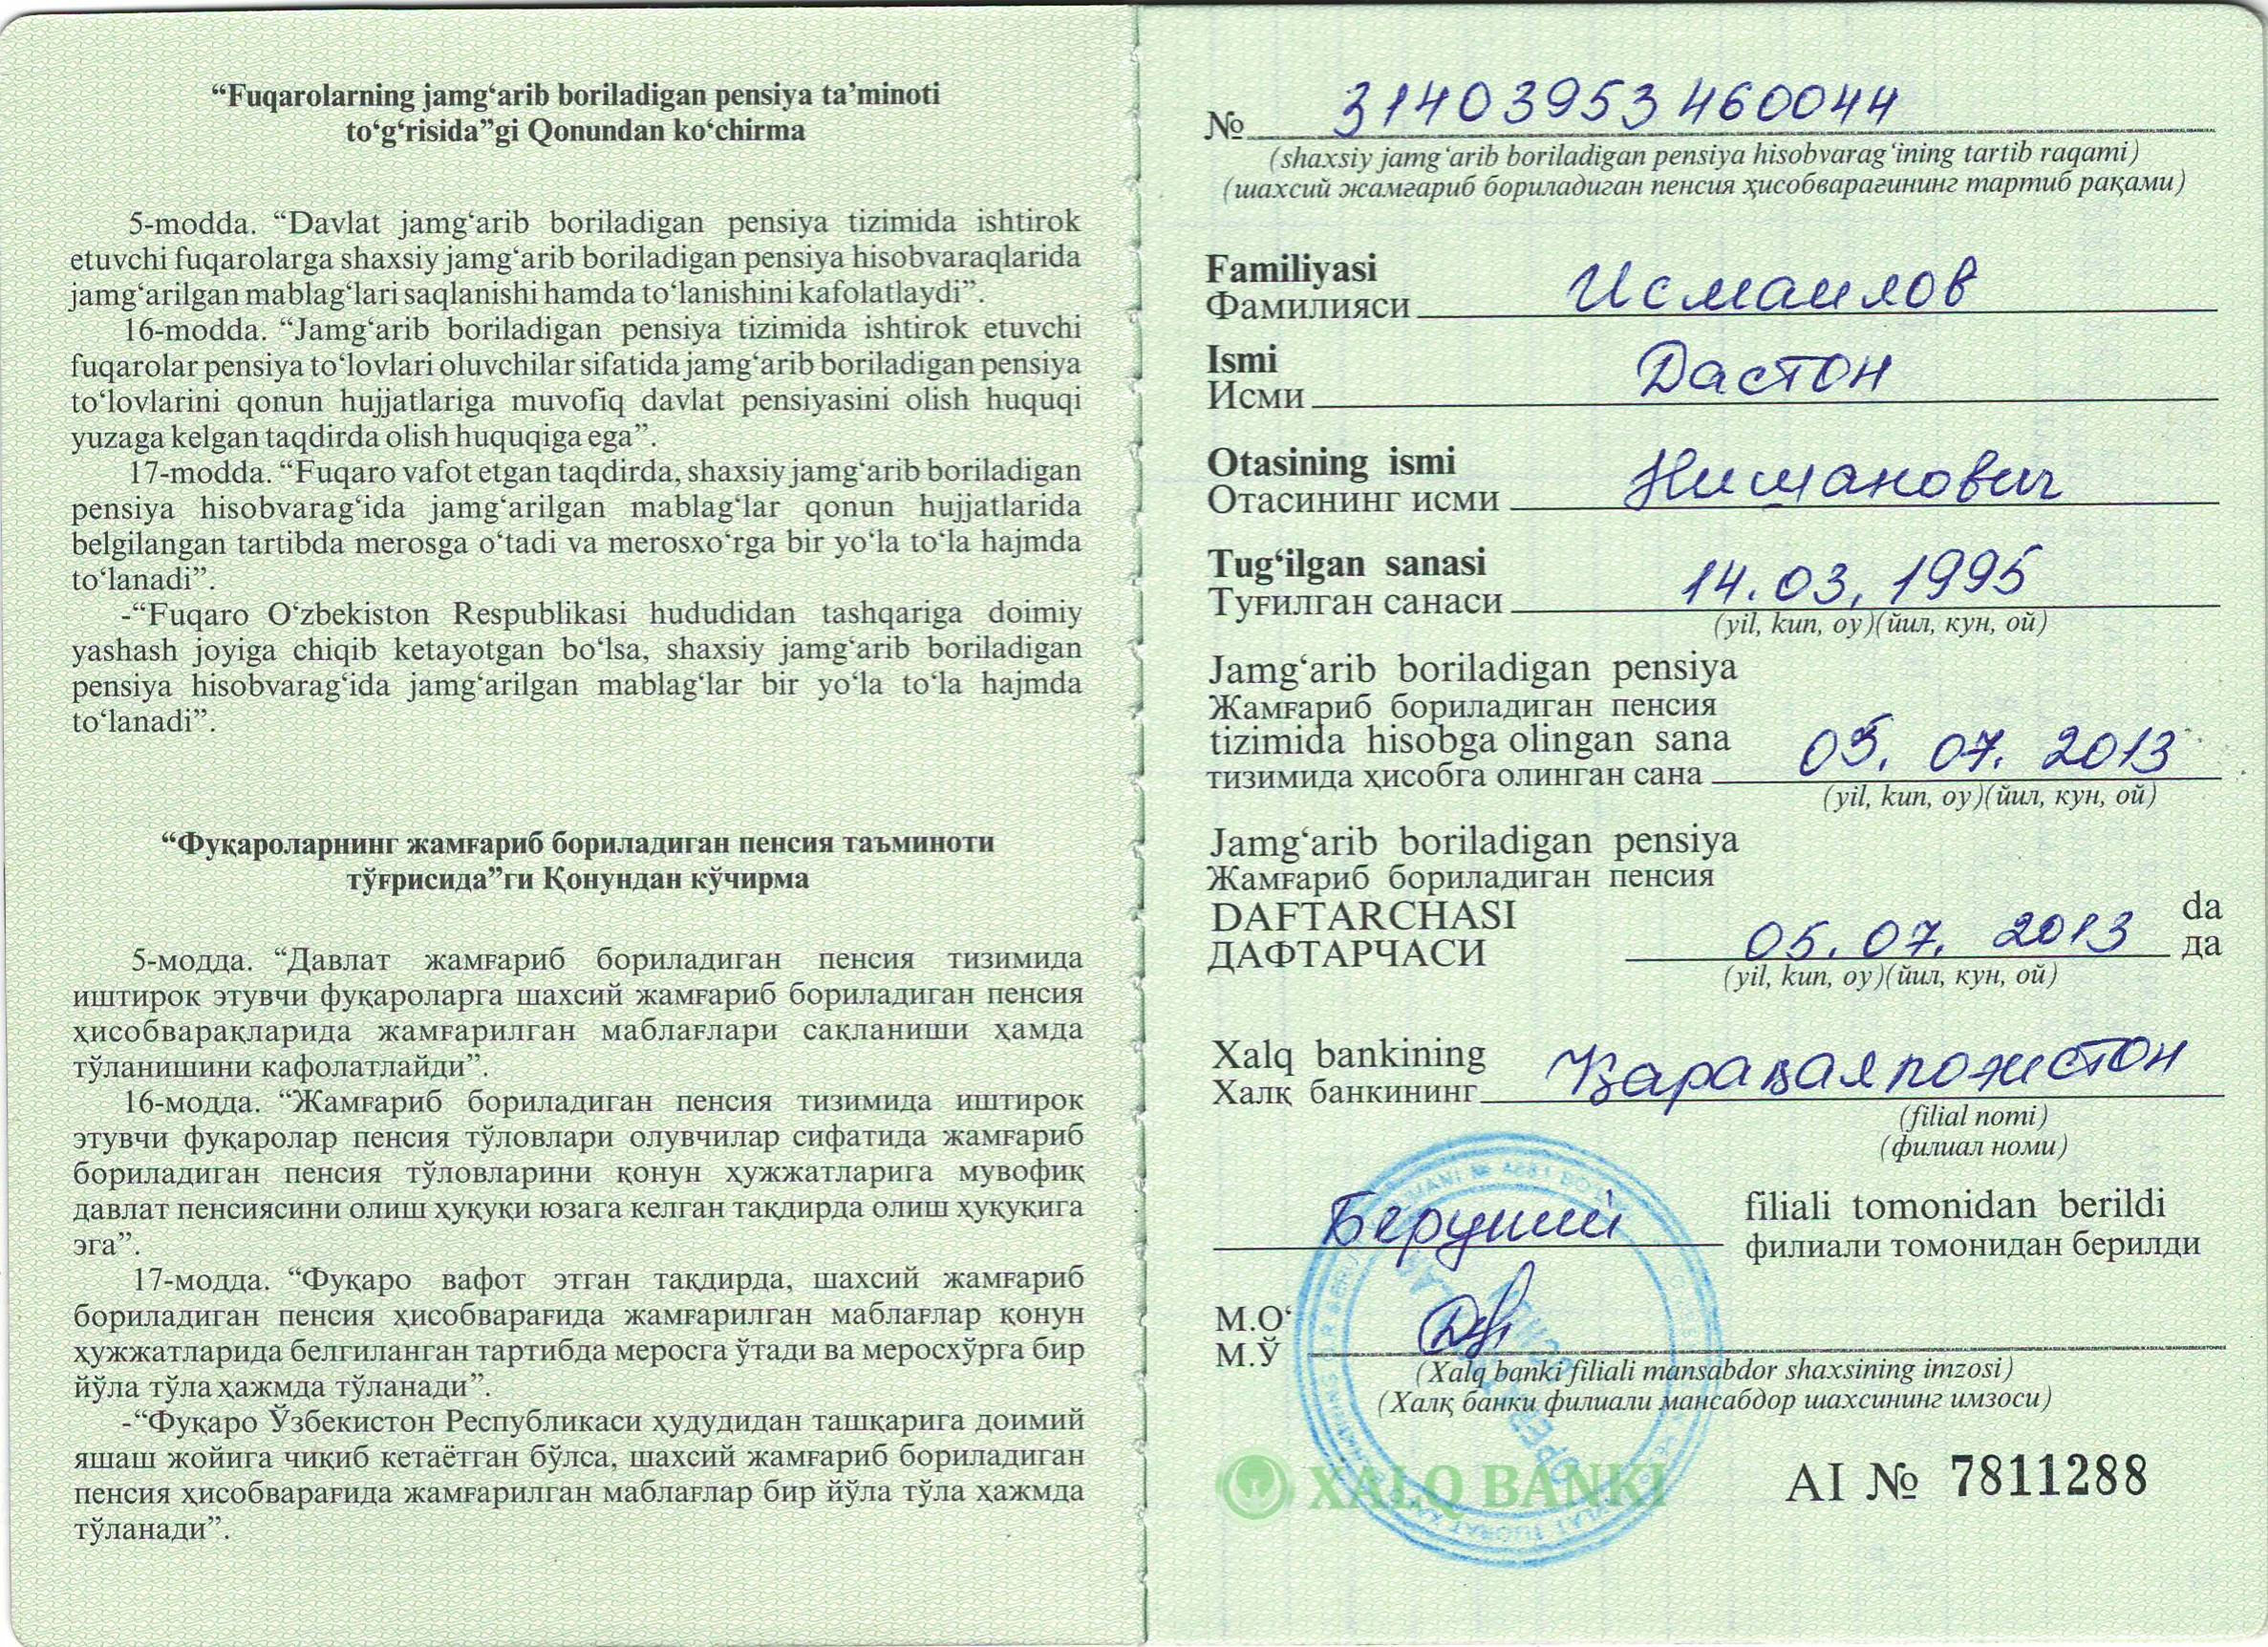 “Fuqarolarning jamg‘arib boriladigan pensiya ta’minoti
to‘g‘risida”gi Qonundan ko‘chirma
5-modda. “Davlat jamg‘arib boriladigan pensiya tizimida ishtirok
etuvchi fuqarolarga shaxsiy jamg‘arib boriladigan pensiya hisobvaraqlarida
jamg‘arilgan mablag‘lari saqlanishi hamda to‘lanishini kafolatlaydi”.
16-modda. “Jamg‘arib boriladigan pensiya tizimida ishtirok etuvchi
fuqarolar pensiya to‘lovlari oluvchilar sifatida jamg‘arib boriladigan pensiya
to‘lovlarini qonun hujjatlariga muvofiq davlat pensiyasini olish huquqi
yuzaga kelgan taqdirda olish huquqiga ega”.
17-modda. “Fuqaro vafot etgan taqdirda, shaxsiy jamg‘arib boriladigan
pensiya hisobvarag‘ida jamg‘arilgan mablag‘lar qonun hujjatlarida
belgilangan tartibda merosga o‘tadi va merosxo‘rga bir yo‘la to‘la hajmda
to‘lanadi”.
-“Fuqaro O‘zbekiston Respublikasi hududidan tashqariga doimiy
yashash joyiga chiqib ketayotgan bo‘lsa, shaxsiy jamg‘arib boriladigan
pensiya hisobvarag‘ida jamg‘arilgan mablag‘lar bir yo‘la to‘la hajmda
to‘lanadi”.
“Фуқароларнинг жамғариб бориладиган пенсия таъминоти
тўғрисида”ги Қонундан кўчирма
5-модда. “Давлат жамғариб бориладиган пенсия тизимида
иштирок этувчи фуқароларга шахсий жамғариб бориладиган пенсия
ҳисобварақларида жамғарилган маблағлари сақланиши ҳамда
тўланишини кафолатлайди”.
16-модда. “Жамғариб бориладиган пенсия тизимида иштирок
этувчи фуқаролар пенсия тўловлари олувчилар сифатида жамғариб
бориладиган пенсия тўловларини қонун ҳужжатларига мувофиқ
давлат пенсиясини олиш ҳуқуқи юзага келган тақдирда олиш ҳуқуқига
эга”.
17-модда. “Фуқаро вафот этган тақдирда, шахсий жамғариб
бориладиган пенсия ҳисобварағида жамғарилган маблағлар қонун
ҳужжатларида белгиланган тартибда меросга ўтади ва меросхўрга бир
йўла тўла ҳажмда тўланади”.
-“Фуқаро Ўзбекистон Республикаси ҳудудидан ташқарига доимий
яшаш жойига чиқиб кетаётган бўлса, шахсий жамғариб бориладиган
пенсия ҳисобварағида жамғарилган маблағлар бир йўла тўла ҳажмда
тўланади”.
№ 31403953460044
(shaxsiy jamg‘arib boriladigan pensiya hisobvarag‘ining tartib raqami)
(шахсий жамғариб бориладиган пенсия ҳисобварағининг тартиб рақами)
Familiyasi
Фамилияси Исмаилов
Ismi
Исми Дастон
Otasining ismi
Отасининг исми Нишанович
Tug‘ilgan sanasi
Туғилган санаси 14.03, 1995
(yil, kun, oy)(йил, кун, ой)
Jamg‘arib boriladigan pensiya
Жамғариб бориладиган пенсия
tizimida hisobga olingan sana
тизимида ҳисобга олинган сана 05. 07. 2013
(yil, kun, oy)(йил, кун, ой)
Jamg‘arib boriladigan pensiya
Жамғариб бориладиган пенсия
DAFTARCHASI da
ДАФТАРЧАСИ 05.07. 2013 да
(yil, kun, oy)(йил, кун, ой)
Xalq bankining
Халқ банкининг Қарақалпоғистон
(filial nomi)
(филиал номи)
Беруний filiali tomonidan berildi
филиали томонидан берилди
M.O‘
М.Ў
(Xalq banki filiali mansabdor shaxsining imzosi)
(Халқ банки филиали мансабдор шахсининг имзоси)
XALQ BANKI AI № 7811288